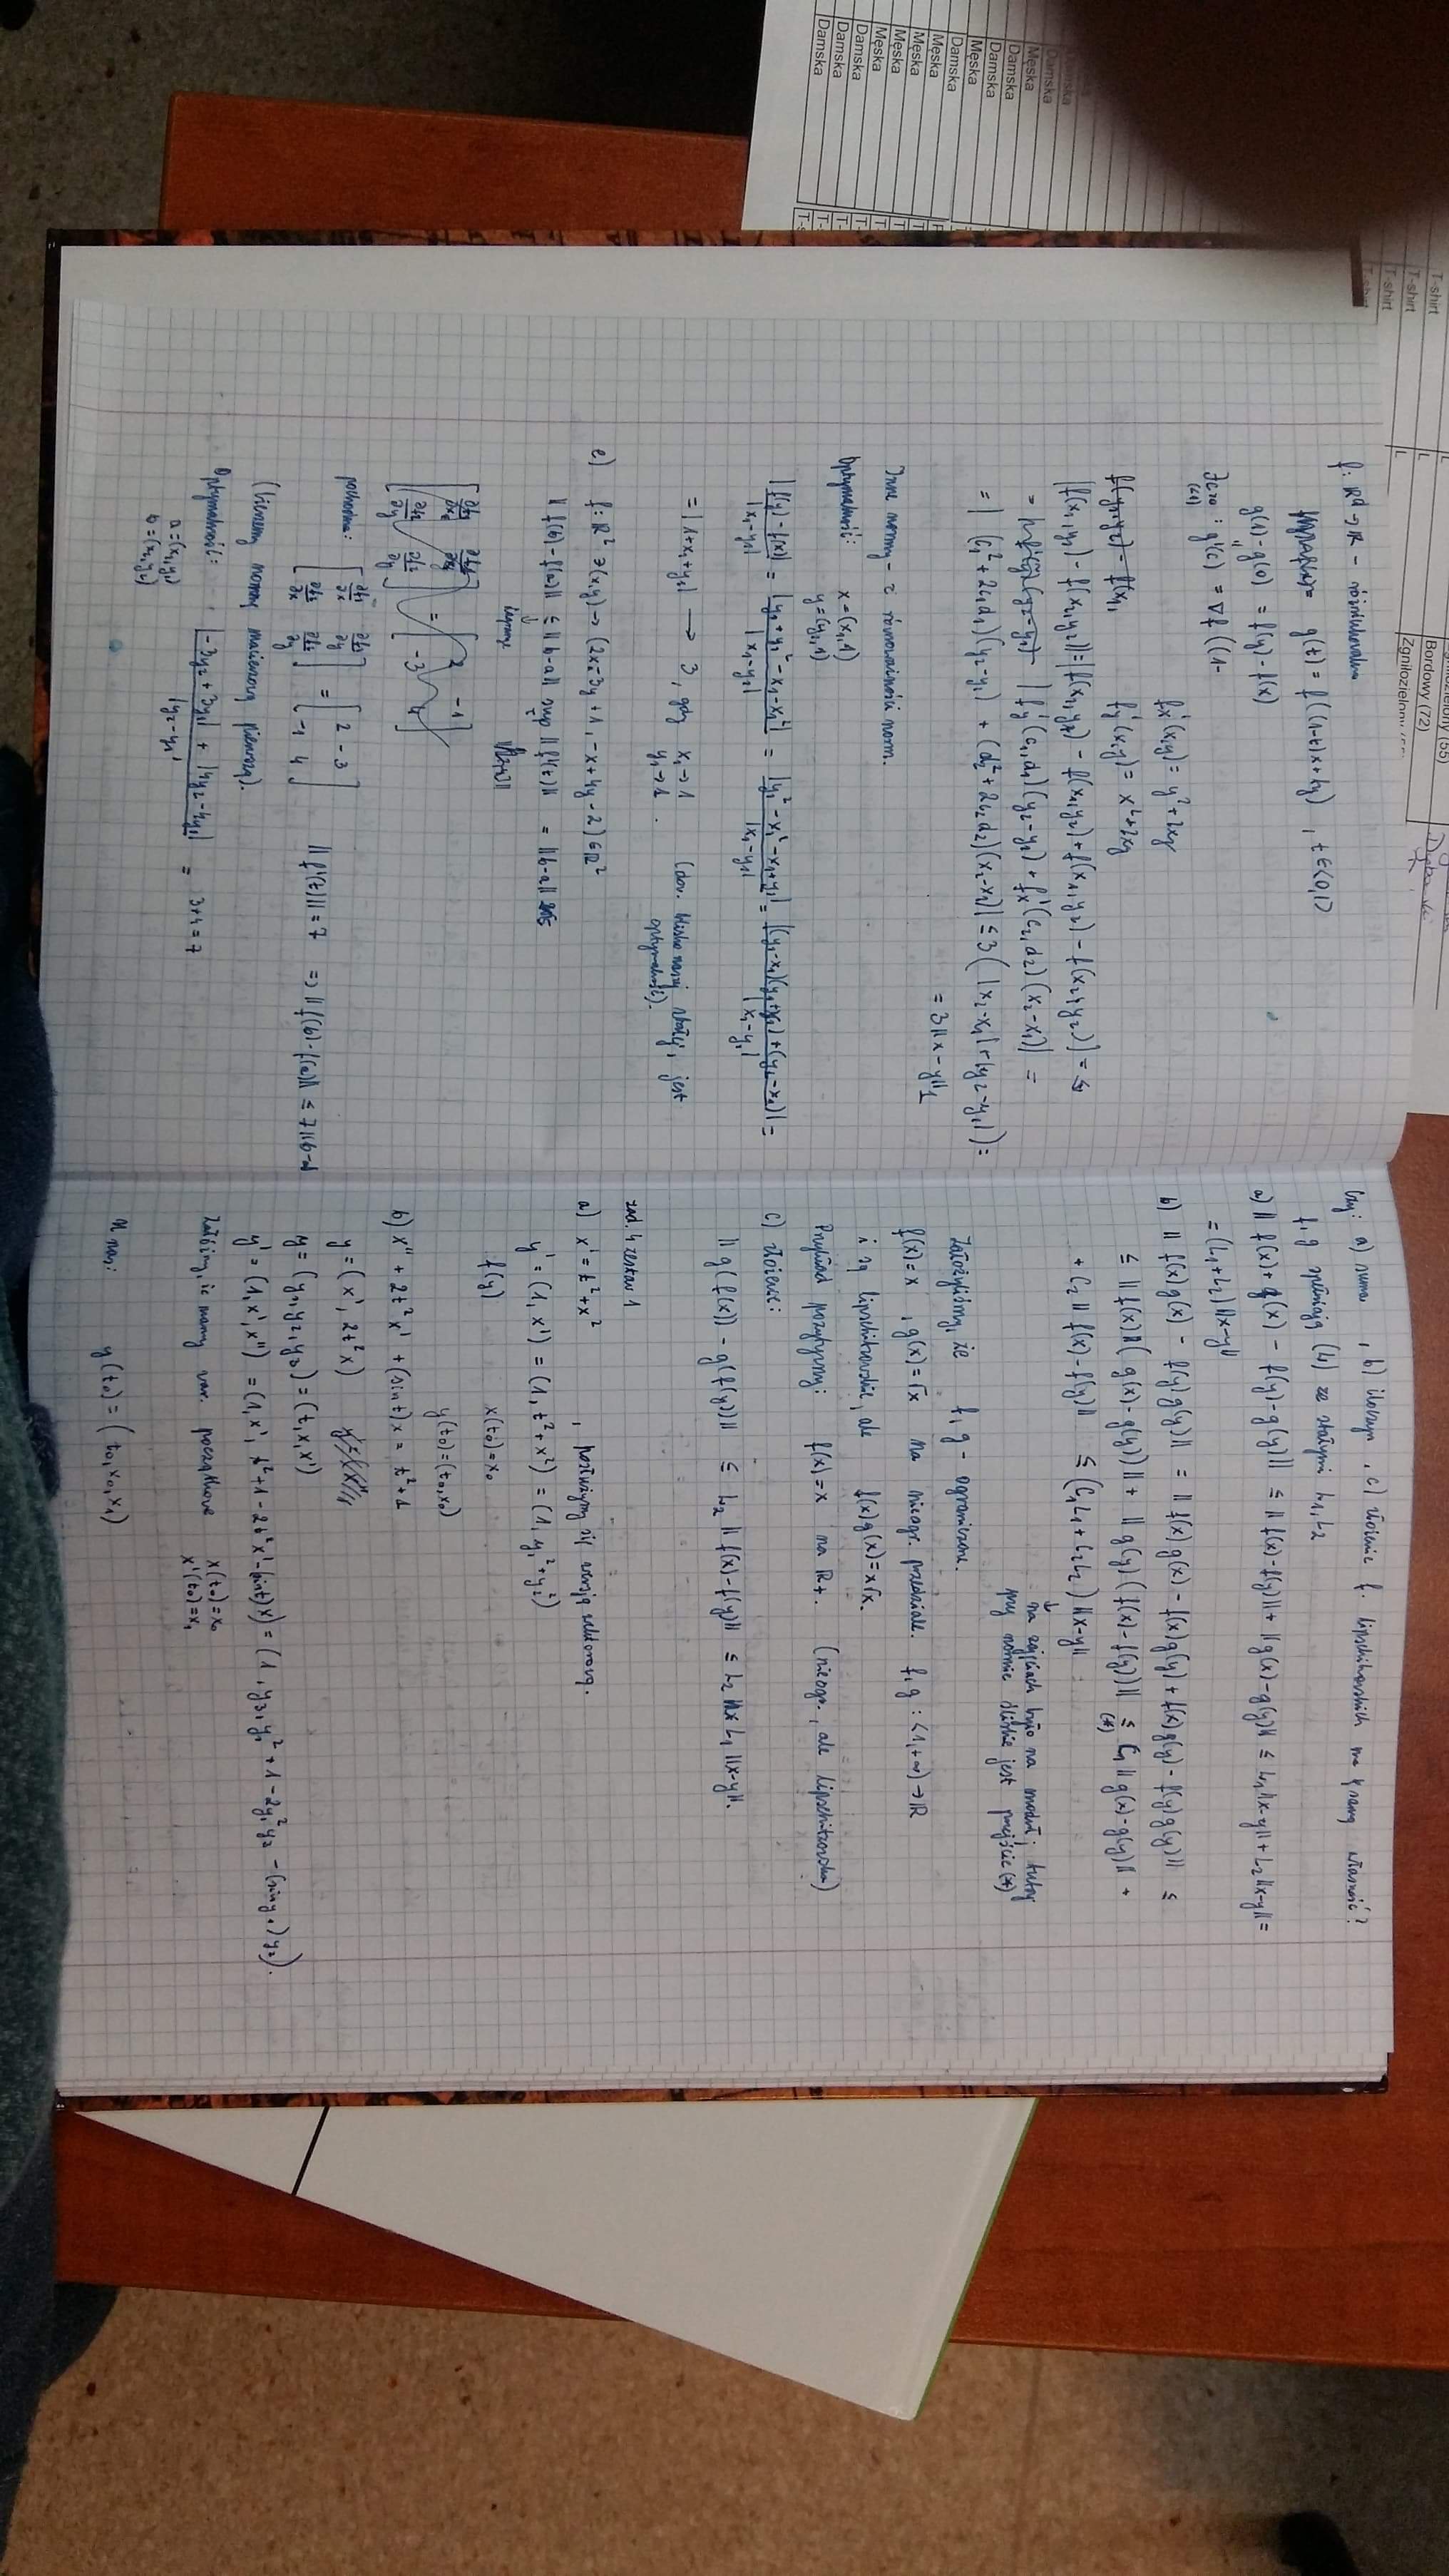 T-shirt
T-shirt
T-shirt
L
L
L
Bordowy (72)
Damska
Damska
Męska
Damska
Damska
Męska
Damska
Męska
Męska
Męska
Męska
Damska
Damska
Damska
f: ℝᵈ → ℝ - różniczkowalna
g(t) = f((1-t)x+ty) , t∈<0,1>
g(1)-g(0) = f(y)-f(x)
∃c>0 : g'(c) = ∇f((1-
(<1)
fx'(x,y) = y²+2xy
f(y₁,y₂) - f(x₁, fy'(x,y) = x²+2xy
|f(x₁,y₁) - f(x₂,y₂)| = |f(x₁,y₁) - f(x₁,y₂) + f(x₁,y₂) - f(x₂,y₂)| =
= |fy'(c₁,d₁)(y₂-y₁) + fx'(c₂,d₂)(x₂-x₁)| =
= |(c₁²+2c₁d₁)(y₂-y₁) + (d₂²+2c₂d₂)(x₂-x₁)| ≤ 3(|x₂-x₁|+|y₂-y₁|) =
= 3||x-y||₁
Inne normy - z równoważności norm.
Optymalność: x=(x₁,1)
y=(y₁,1)
|f(y)-f(x)| / |x₁-y₁| = |y₁+y₁²-x₁-x₁²| / |x₁-y₁| = |y₁²-x₁²-x₁+y₁| / |x₁-y₁| = |(y₁-x₁)(y₁+x₁)+(y₁-x₁)| / |x₁-y₁| =
= |1+x₁+y₁| → 3, gdy x₁→1 (dow. blisko naszej stałej, jest
y₁→1. optymalność).
e) f: ℝ² ∋(x,y) → (2x-3y+1, -x+4y-2) ∈ℝ²
||f(b)-f(a)|| ≤ ||b-a|| sup ||f'(t)|| = ||b-a||
↓ Lagrange
[∂f₁/∂x ∂f₂/∂x] = [2 -1]
[∂f₁/∂y ∂f₂/∂y] [-3 4]
pochodna: [∂f₁/∂x ∂f₁/∂y] = [2 -3]
[∂f₂/∂x ∂f₂/∂y] [-1 4] ||f'(t)|| = 7 => ||f(b)-f(a)|| ≤ 7||b-a||
(bierzemy normę macierzową pierwszą).
Optymalność: (|-3y₂+3y₁| + |4y₂-4y₁|) / |y₂-y₁| = 3+4=7
a=(x₁,y₁)
b=(x₂,y₂)
Czy: a) suma , b) iloczyn , c) złożenie f. lipschitzowskich ma tę samą własność?
f, g spełniają (L) ze stałymi L₁, L₂
a) ||f(x)+g(x) - f(y)-g(y)|| ≤ ||f(x)-f(y)|| + ||g(x)-g(y)|| ≤ L₁||x-y|| + L₂||x-y|| =
= (L₁+L₂)||x-y||
b) ||f(x)g(x) - f(y)g(y)|| = ||f(x)g(x) - f(x)g(y) + f(x)g(y) - f(y)g(y)|| ≤
≤ ||f(x)(g(x)-g(y))|| + ||g(y)(f(x)-f(y))|| ≤ C₁||g(x)-g(y)|| +
(*)
+ C₂||f(x)-f(y)|| ≤ (C₁L₁+C₂L₂)||x-y||
↓
na zajęciach było na moduł; tutaj
przy normie śliskie jest przejście (*)
Założyliśmy, że f, g - ograniczone.
f(x)=x , g(x)=√x na nieogr. przedziale. f,g : <1,+∞) → ℝ
i są lipschitzowskie, ale f(x)g(x)=x√x.
Przykład pozytywny: f(x)=x na ℝ+. (nieogr., ale lipschitzowska)
c) złożenie:
||g(f(x)) - g(f(y))|| ≤ L₂||f(x)-f(y)|| ≤ L₂ L₁||x-y||.
zad. 4 zestaw 1
a) x' = t²+x² , posłużymy się wersją wektorową.
y' = (1, x') = (1, t²+x²) = (1, y₁²+y₂²)
f(y) x(t₀)=x₀
y(t₀)=(t₀,x₀)
b) x'' + 2t²x' + (sin t)x = t²+1
y = (x', 2t²x)
y = (y₁, y₂, y₃) = (t, x, x')
y' = (1, x', x'') = (1, x', t²+1-2t²x'-(sin t)x) = (1, y₃, y₁²+1-2y₁²y₃-(sin y₁)y₂).
Załóżmy, że mamy war. początkowe x(t₀)=x₀
x'(t₀)=x₁
U nas: y(t₀) = (t₀, x₀, x₁)